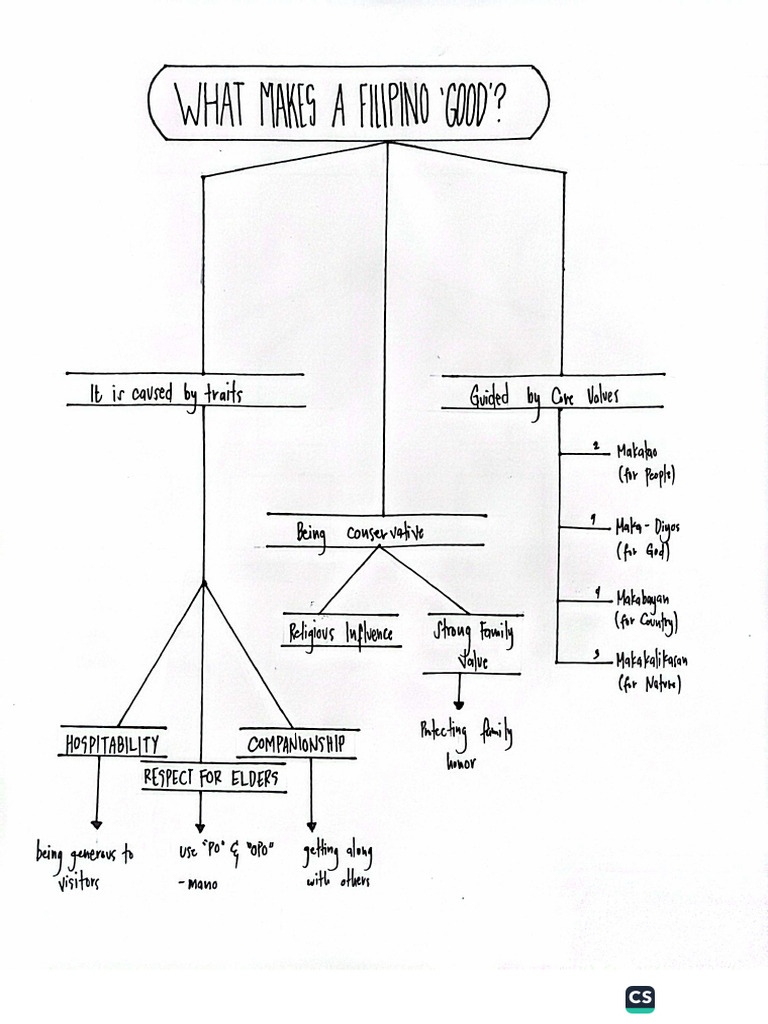 WHAT MAKES A FILIPINO 'GOOD'?
It is caused by traits
Guided by Core Values
2 Makatao
(for People)
1 Maka-Diyos
(for God)
4 Makabayan
(for Country)
3 Makakalikasan
(for Nature)
Being conservative
Religious Influence
Strong Family
Value
Protecting family
honor
HOSPITABILITY
RESPECT FOR ELDERS
COMPANIONSHIP
being generous to
visitors
use "PO" & "OPO"
- mano
getting along
with others
CS